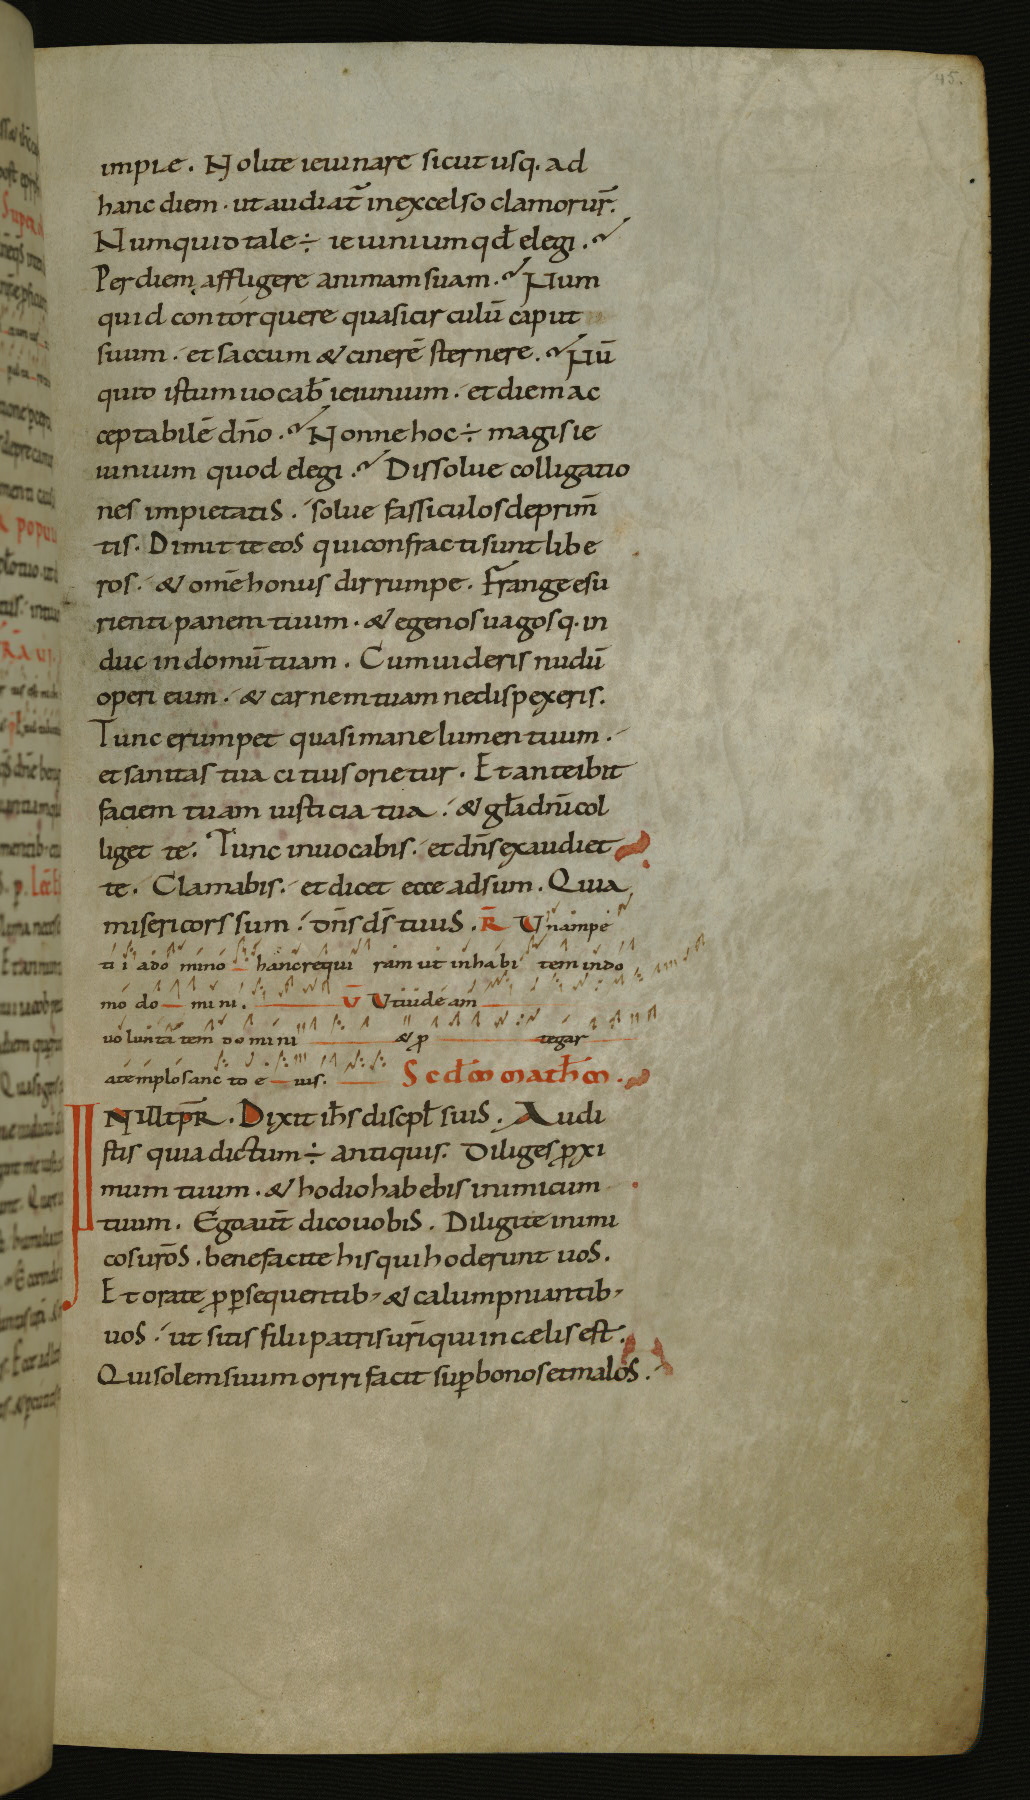 45.
impie. Nolite ieiunare sicut usq. ad
hanc diem. ut audiat̄ in excelso clamor ur̄.
Numquid tale ÷ ieiunium qd̄ elegi.
Per diem affligere animam suam. Num
quid contorquere quasi circulū caput
suum. et saccum & cinerē sternere. Nū
quid istum uocab̄ ieiunium. et diem ac
ceptabilē dn̄o. Nonne hoc ÷ magis ie
iunium quod elegi. Dissolue colligatio
nes impietatis. solue fasciculos deprim̄
tis. Dimitte eos qui confracti sunt libe
ros. & om̄e honus dirrumpe. Frange esu
rienti panem tuum. & egenos uagosq. in
duc in domū tuam. Cum uideris nudū
operi eum. & carnem tuam ne dispexeris.
Tunc erumpet quasi mane lumen tuum.
et sanitas tua citius orietur. Et anteibit
faciem tuam iusticia tua. & gl̄a dn̄i col
liget te. Tunc inuocabis. et dn̄s exaudiet
te. Clamabis. et dicet ecce adsum. Quia
misericors sum. dn̄s ds̄ tuus. R̄ Unam pe
tii a domino hanc requiram ut inhabitem in do
mo domini. V̄ Ut uideam
uoluntatem domini & p̱ tegar
a templo sancto eius. Scdm̄ math̄m.
IN illt̄pr̄. Dixit ih̄s discipl̄ suis. Audi
stis quia dictum ÷ antiquis. Diliges p̱xi
mum tuum. & hodio habebis inimicum
tuum. Ego aut̄ dico uobis. Diligite inimi
cos ur̄os. benefacite his qui hoderunt uos.
Et orate p̱ p̱sequentib; & calumpniantib;
uos. ut sitis filii patris ur̄i qui in cælis est.
Qui solem suum oriri facit sup̱ bonos et malos.